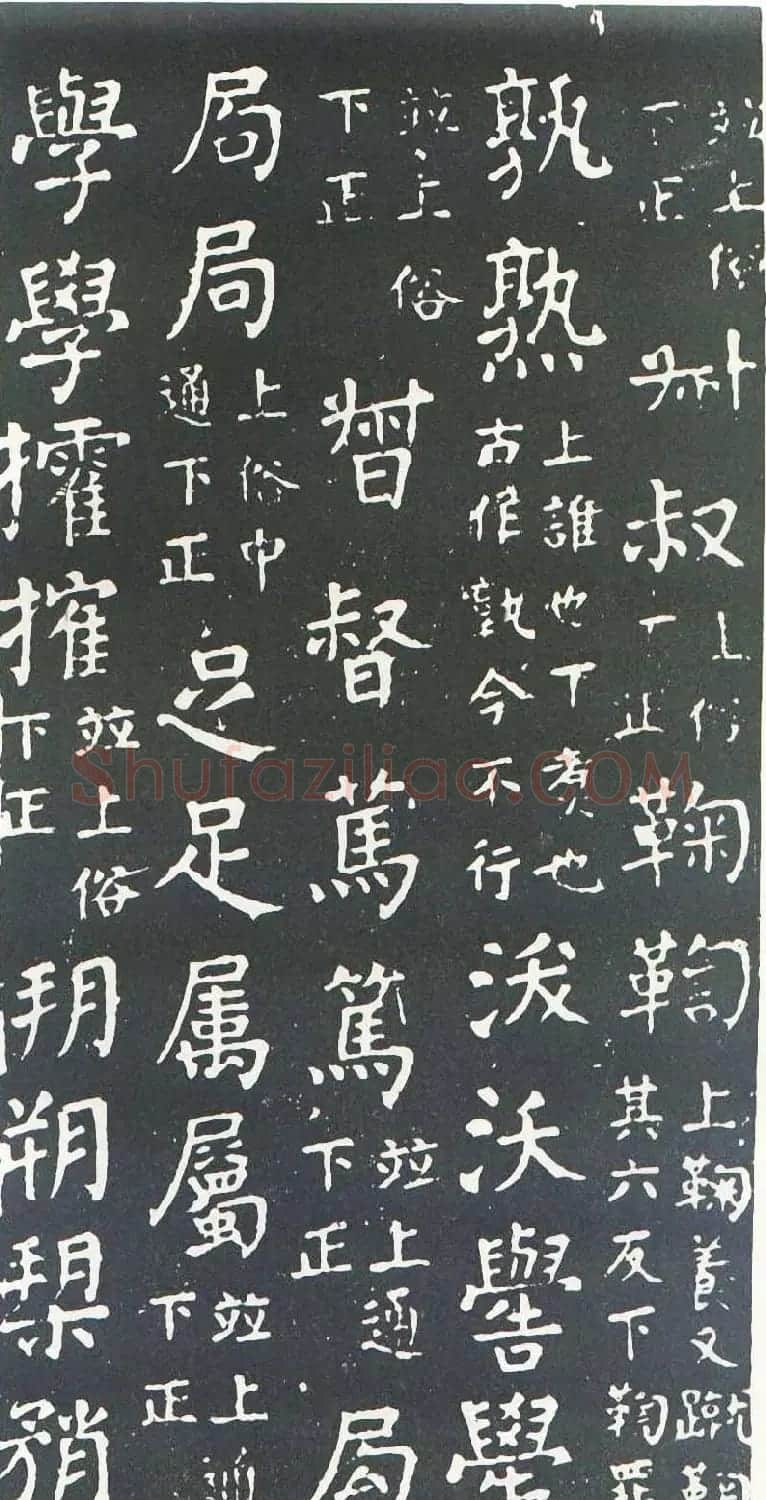 並上俗下正
叔上俗下正鞠鞫上鞠養又蹴鞠其六反下鞫罪
孰熟上誰也下煑也古作孰今不行沃嚳
並上俗下正督篤篤並上通下正局
局局上俗中通下正足足属屬並上通下正
學學搉並上俗下正朔